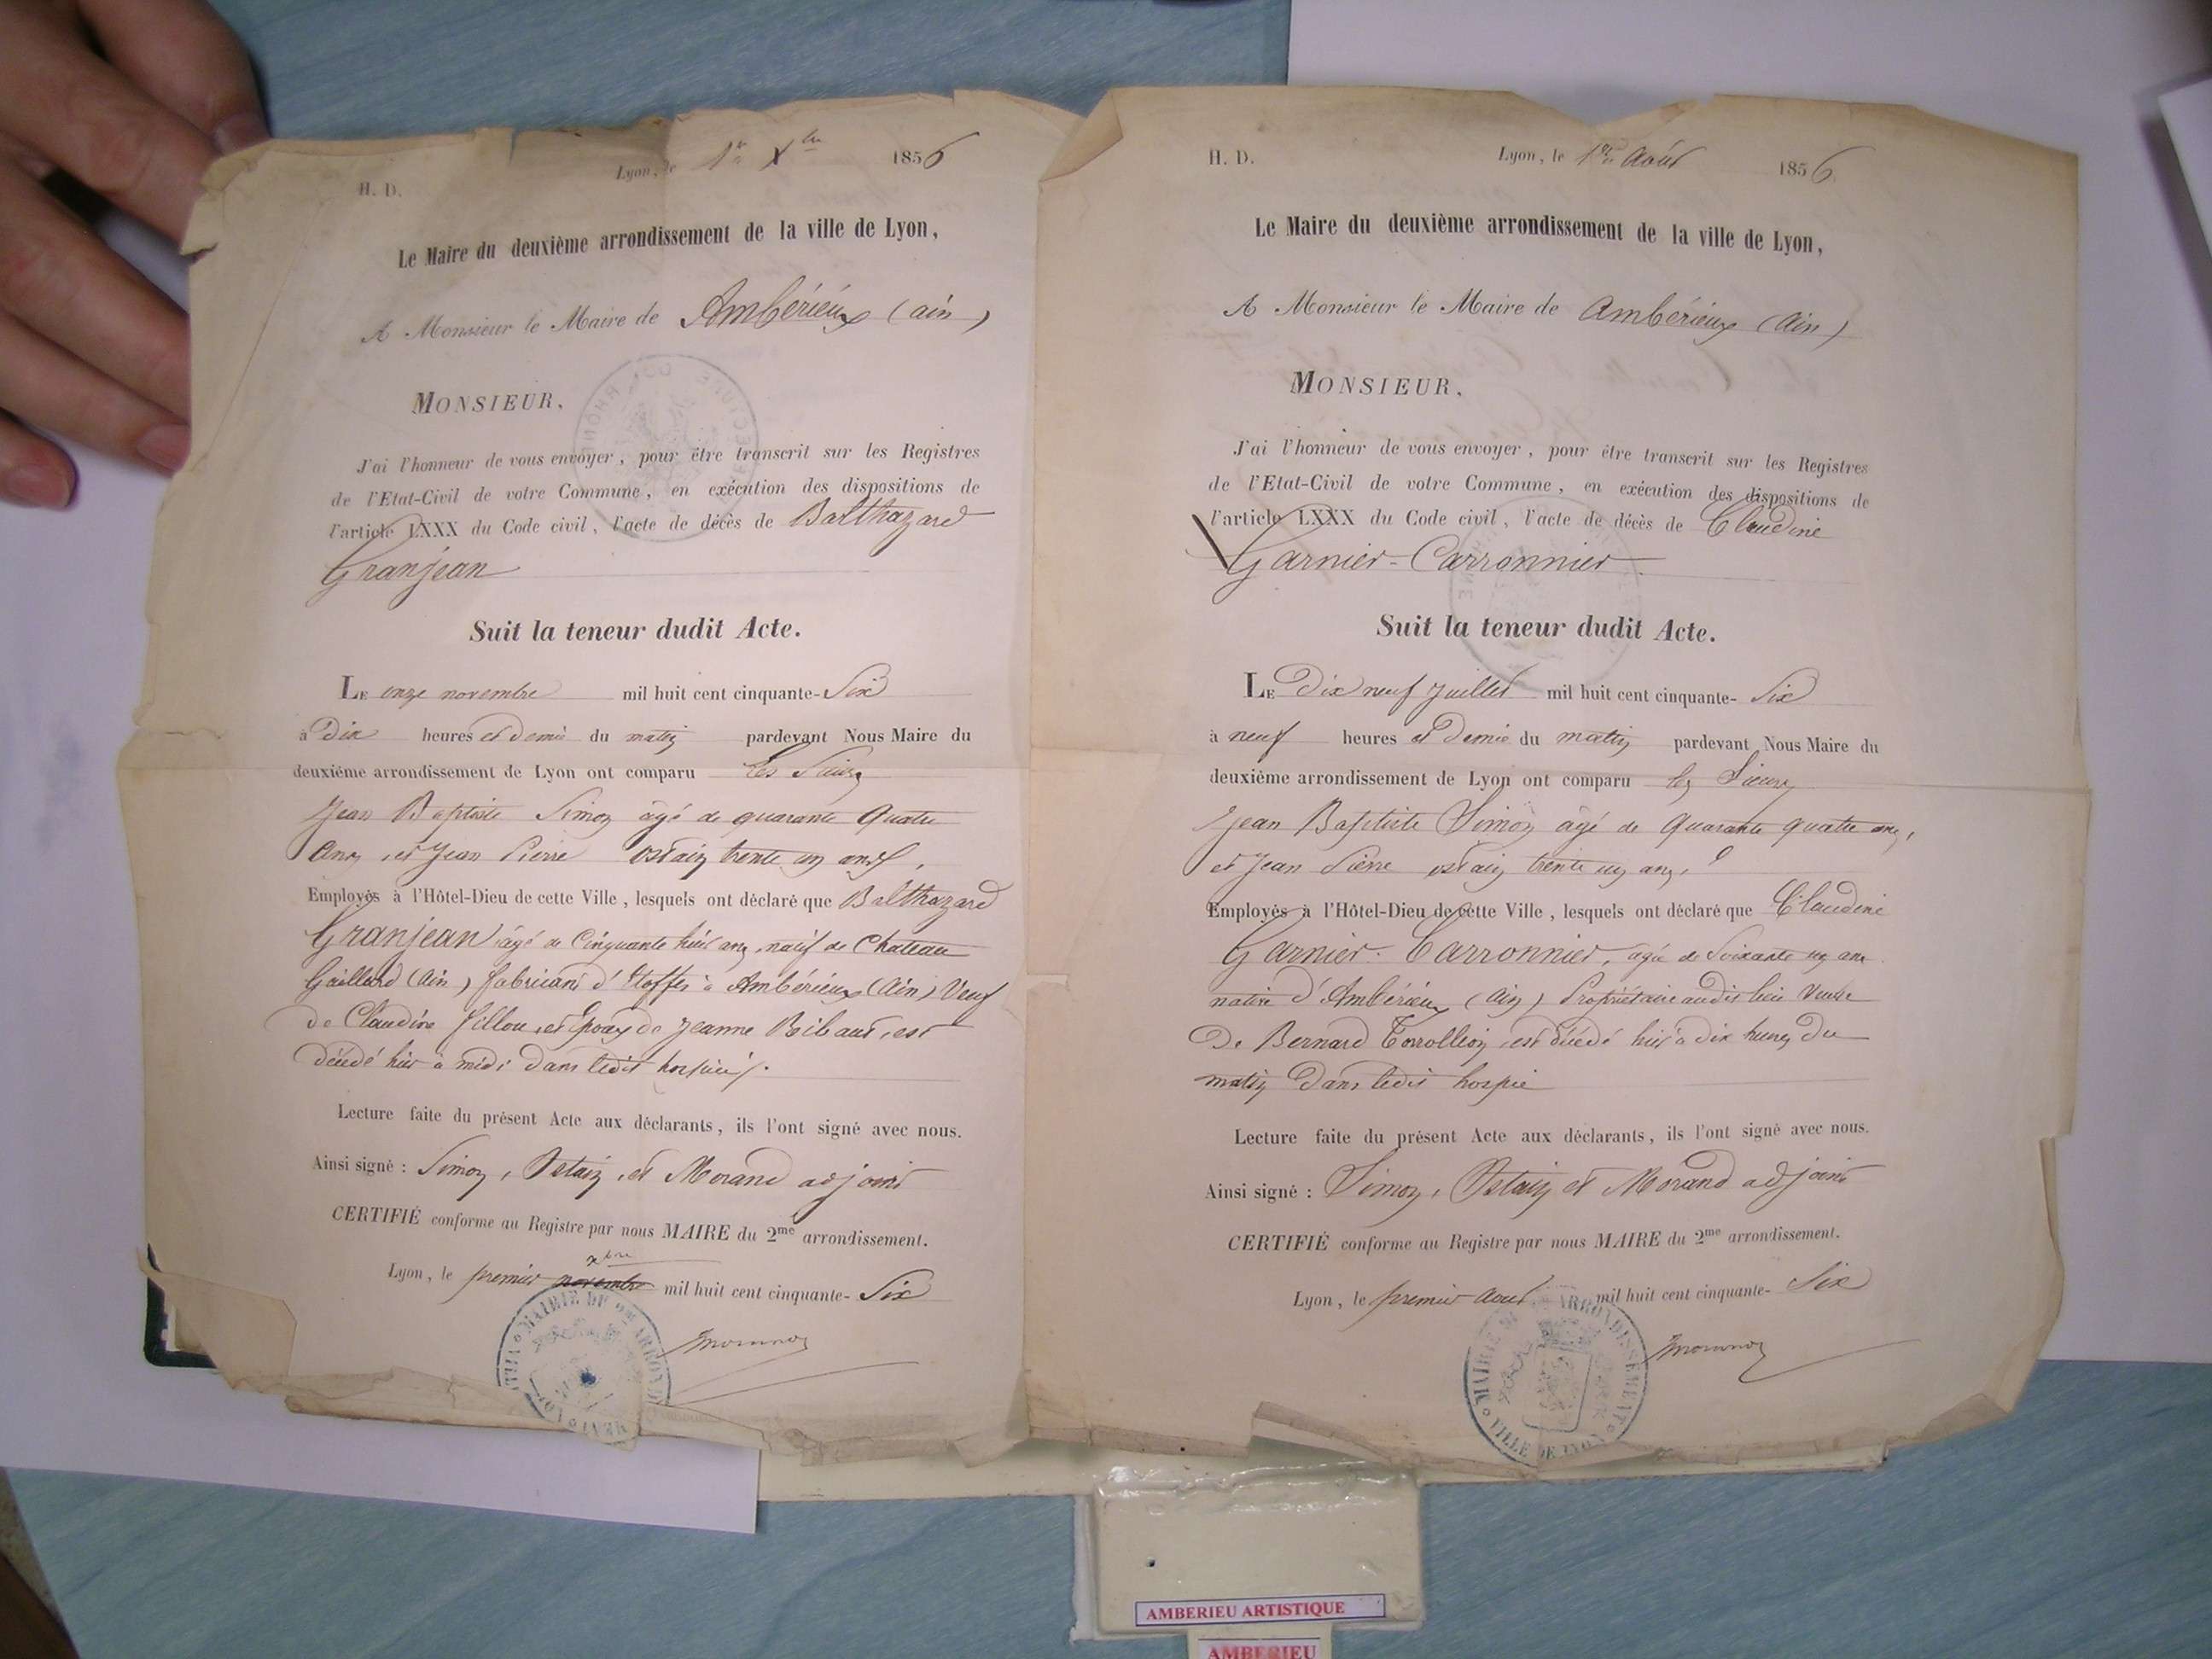 H. D.
Lyon, le 1er Xbre 1856
Le Maire du deuxième arrondissement de la ville de Lyon,
A Monsieur le Maire de Ambérieux (ain)
MONSIEUR,
J'ai l'honneur de vous envoyer, pour être transcrit sur les Registres
de l'Etat-Civil de votre Commune, en exécution des dispositions de
l'article LXXX du Code civil, l'acte de décès de Balthazard
Granjean
Suit la teneur dudit Acte.
LE onze novembre mil huit cent cinquante-Six
à Dix heures et demie du matin pardevant Nous Maire du
deuxième arrondissement de Lyon ont comparu les Sieurs
Jean Baptiste Simon âgé de quarante Quatre
ans, et Jean Pierre trente un ans,
Employés à l'Hôtel-Dieu de cette Ville, lesquels ont déclaré que Balthazard
Granjean âgé de Cinquante huit ans, natif de Chateau
Gaillard (Ain) fabricant d'Etoffes à Ambérieux (Ain) Veuf
de Claudine fillou et Epoux de Jeanne Ribaud, est
décédé hier à midi dans ledit hospice.
Lecture faite du présent Acte aux déclarants, ils l'ont signé avec nous.
Ainsi signé : Simon, et Morand adjoint
CERTIFIÉ conforme au Registre par nous MAIRE du 2me arrondissement.
xbre
Lyon, le premier novembre mil huit cent cinquante-Six
MAIRIE DU 2me ARROND
H. D.
Lyon, le 1er Août 1856
Le Maire du deuxième arrondissement de la ville de Lyon,
A Monsieur le Maire de Ambérieux (Ain)
MONSIEUR,
J'ai l'honneur de vous envoyer, pour être transcrit sur les Registres
de l'Etat-Civil de votre Commune, en exécution des dispositions de
l'article LXXX du Code civil, l'acte de décès de Claudine
Garnier-Carronnier
Suit la teneur dudit Acte.
LE Dix neuf Juillet mil huit cent cinquante-Six
à neuf heures et Demie du matin pardevant Nous Maire du
deuxième arrondissement de Lyon ont comparu les Sieurs
Jean Baptiste Simon âgé de Quarante quatre ans,
et Jean Pierre trente un ans,
Employés à l'Hôtel-Dieu de cette Ville, lesquels ont déclaré que Claudine
Garnier-Carronnier, agée de Soixante un ans
native d'Ambérieux (Ain) Propriétaire audit lieu Veuve
De Bernard est décédé hier à dix heures Du
matin Dans ledit hospice
Lecture faite du présent Acte aux déclarants, ils l'ont signé avec nous.
Ainsi signé : Simon, et Morand adjoint
CERTIFIÉ conforme au Registre par nous MAIRE du 2me arrondissement.
Lyon, le premier Aout mil huit cent cinquante-Six
MAIRIE ARRONDISSEMENT VILLE DE LYON
AMBERIEU ARTISTIQUE
AMBERIEU